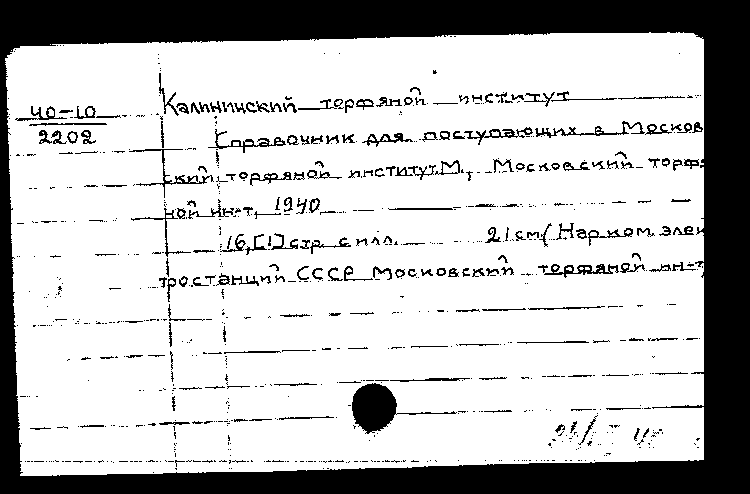 40-10
2202
Калининский торфяной институт
Справочник для поступающих в Москов
ский торфяной институт. М., Московский торфя
ной ин-т, 1940
16,[1] стр. с илл. 21 см (Нар ком. элек
тростанций СССР Московский торфяной ин-т